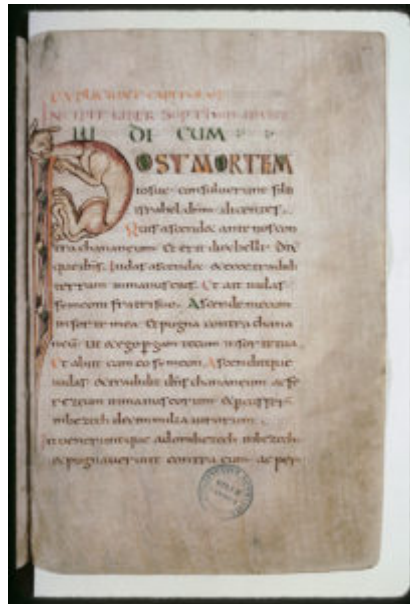 EXPLICIUNT CAPITULA
INCIPIT LIBER
IUDICUM
POST MORTEM
iosue consuluerunt filii
israhel dnm dicentes.
Quis ascendet ante nos con
tra chananeum & erit dux belli. Dix
itque dns. Iudas ascendet
terram in manus eius. Et ait iudas
symeoni fratri suo. Ascende mecum
in sorte mea. Et pugna contra chana
neum ut & ego pergam tecum in sorte tua.
Et abiit cum eo symeon. Ascenditque
iudas & tradidit dns chananeum ac fe
rezeum in manus eorum & percusser
in bezech decem milia uirorum.
Inueneruntque adonibezech in bezech
& pugnauerunt contra eum ac per